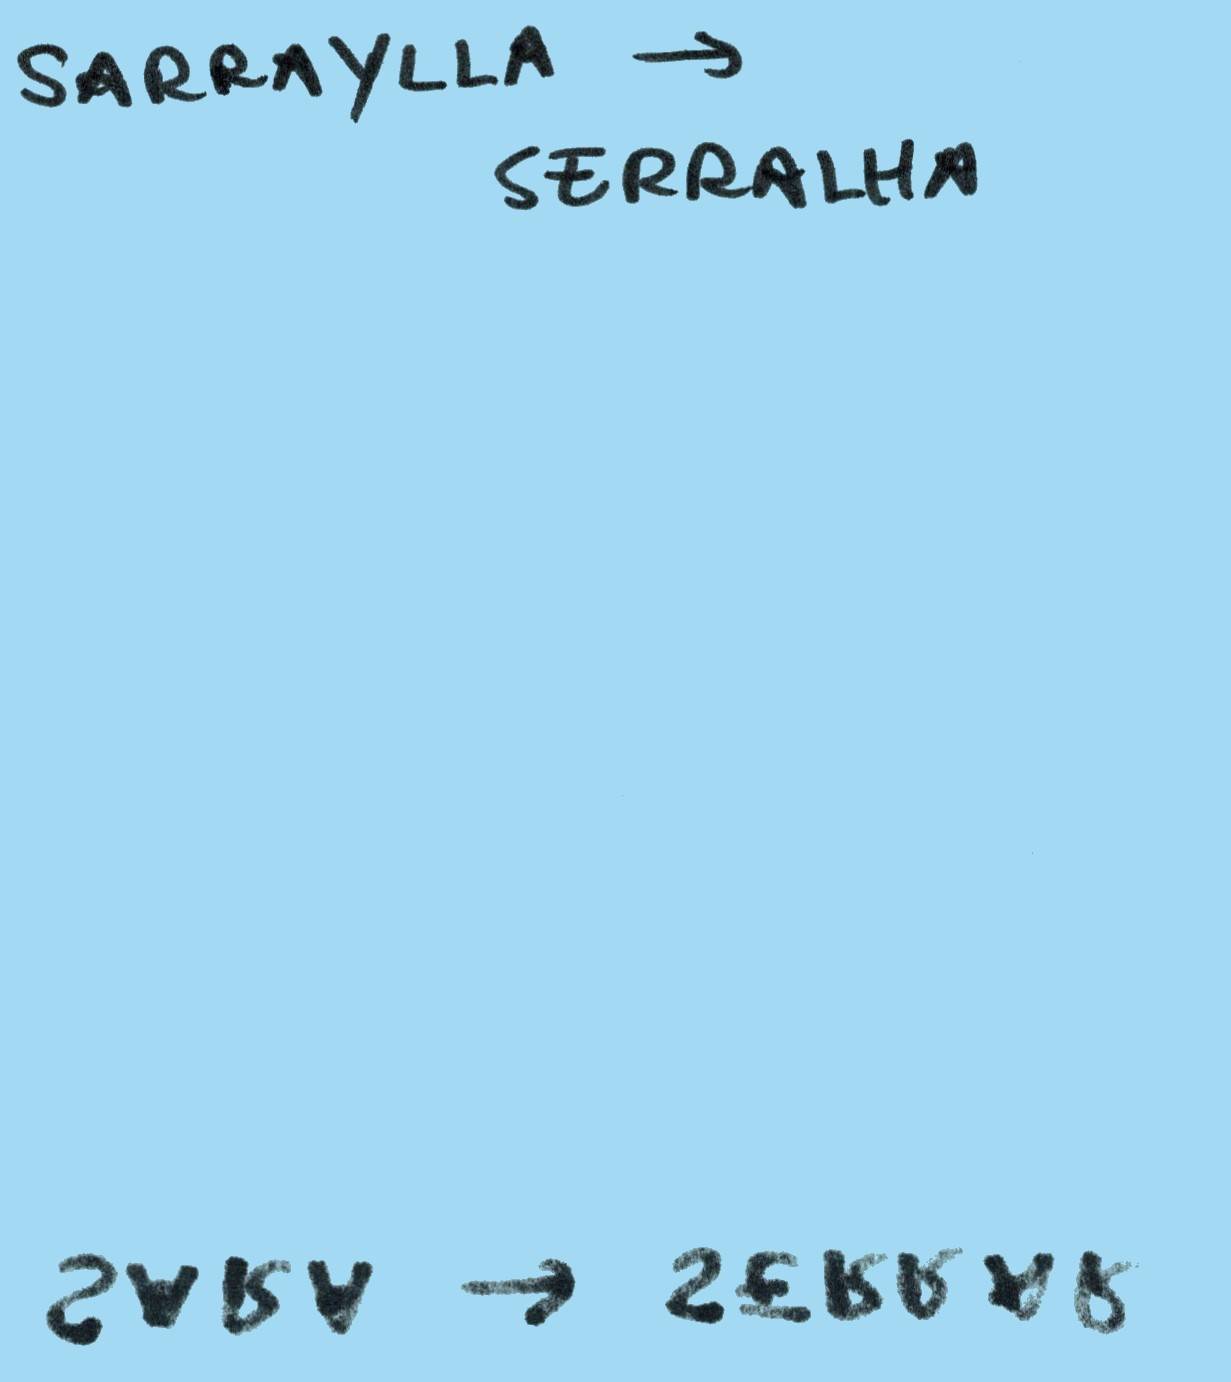 SARRAYLLA →
SERRALHA
SARA → SERRAR